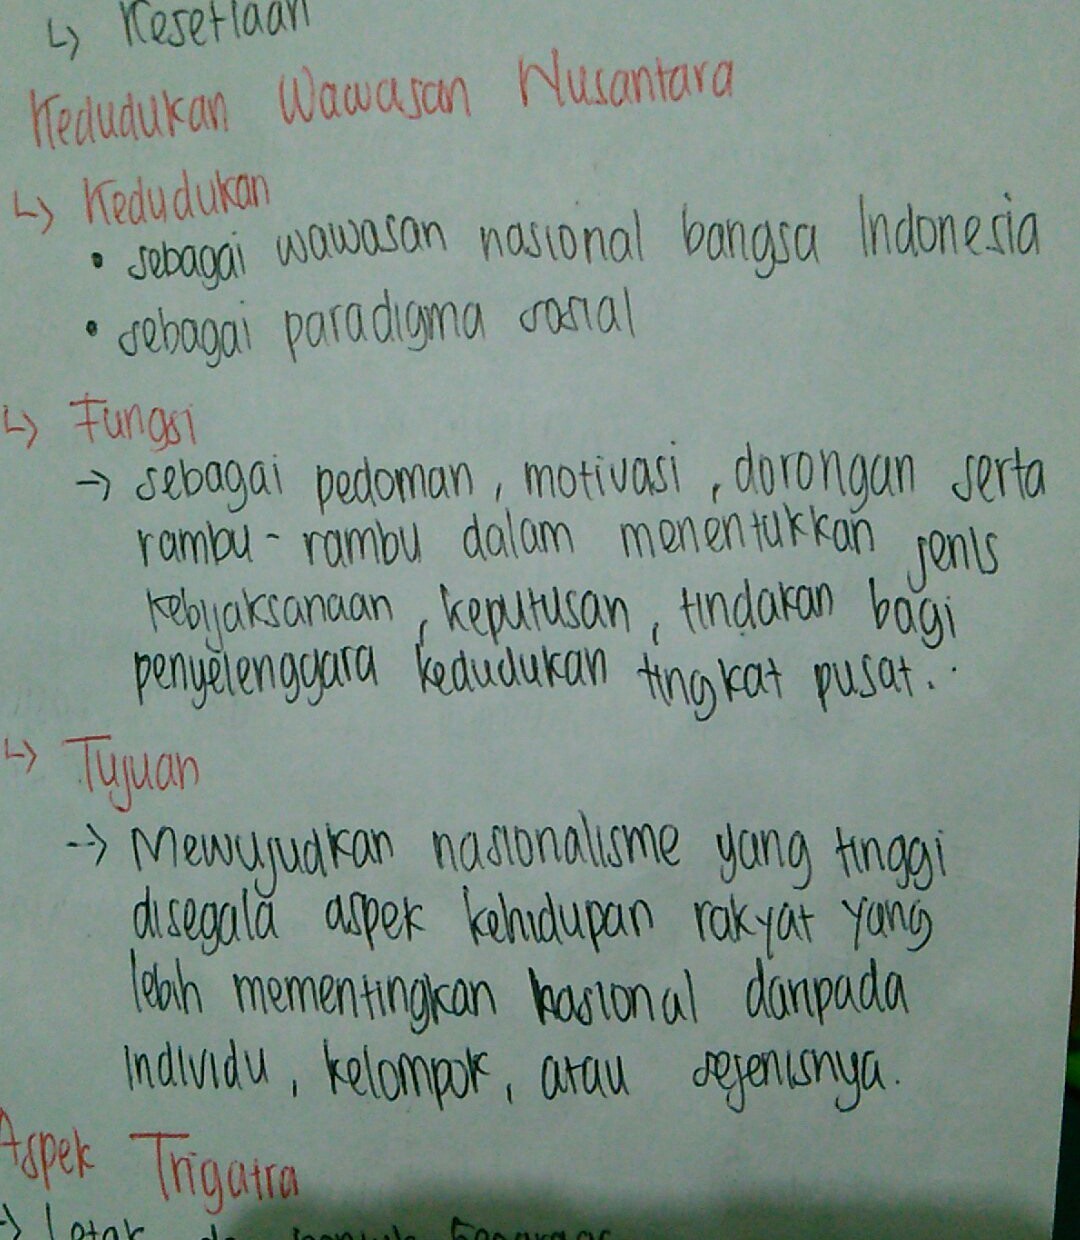 ↳ Kesetiaan
Kedudukan Wawasan Nusantara
↳ Kedudukan
• sebagai wawasan nasional bangsa Indonesia
• sebagai paradigma sosial
↳ Fungsi
→ sebagai pedoman, motivasi, dorongan serta
rambu-rambu dalam menentukkan jenis
kebijaksanaan, keputusan, tindakan bagi
penyelenggara kedudukan tingkat pusat..
↳ Tujuan
→ Mewujudkan nasionalisme yang tinggi
disegala aspek kehidupan rakyat yang
lebih mementingkan nasional daripada
individu, kelompok, atau sejenisnya.
Aspek Trigatra
→ Letak